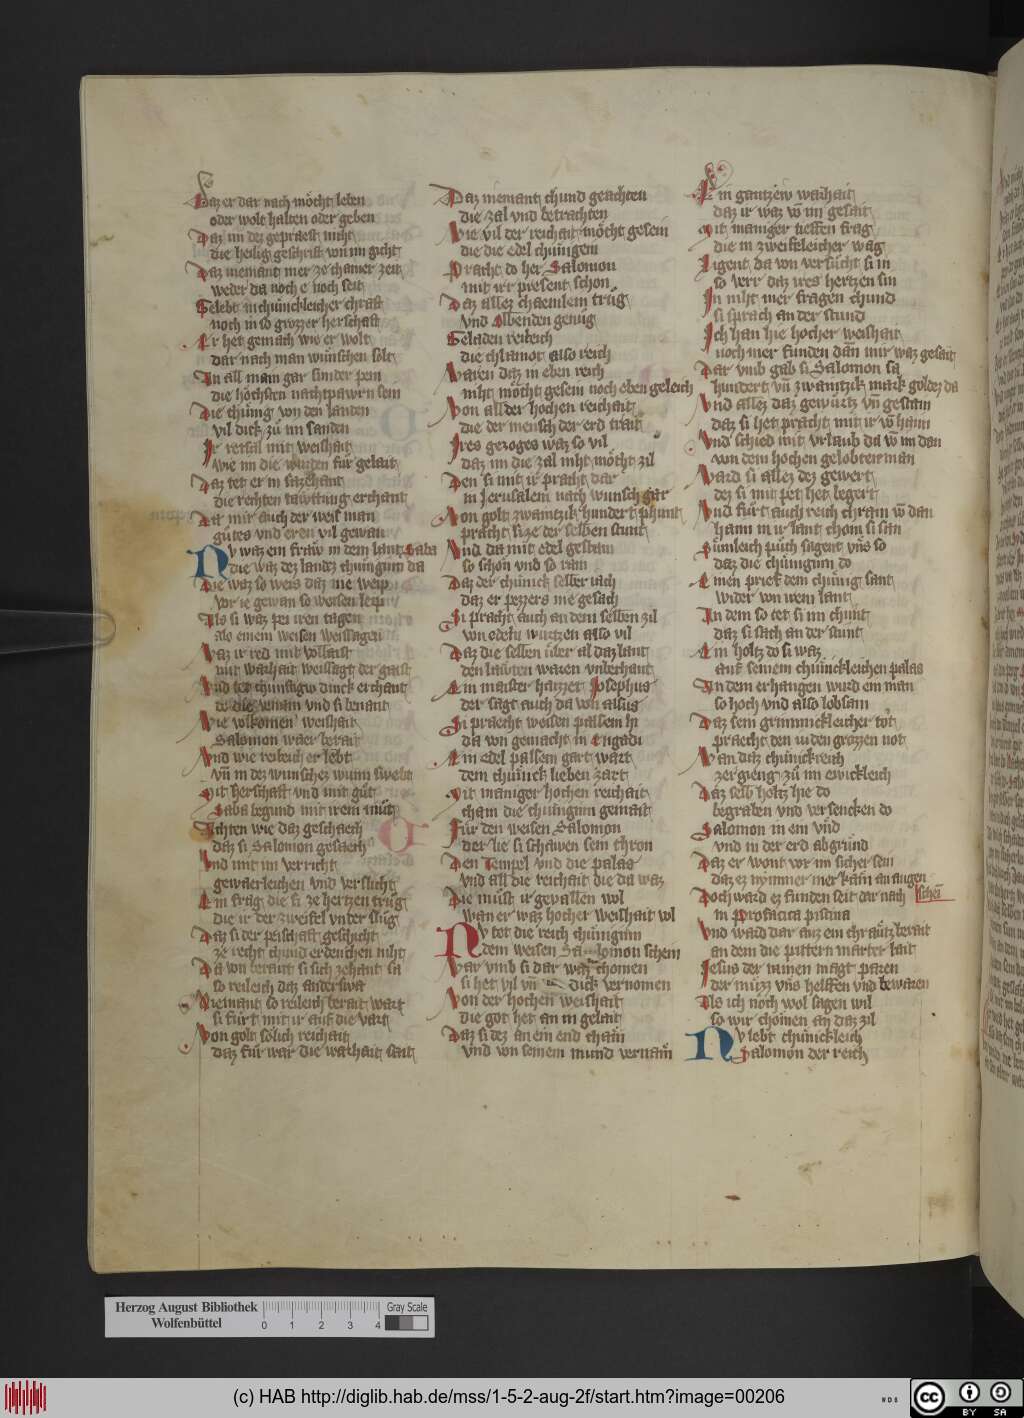 Daz er dar nach möcht leben
oder wolt halten oder geben
Daz im dez gepraest niht
die heilig geschrift von im gicht
Daz niemant mer ze chainer zeit
weder da noch e noch seit
Gelebt in chünchleicher chraft
noch in so grozzer herschaft
Er het gemach wie er wolt
dar nach man wünschen solt
In all main gar sunder pein
die höchsten nachtpawrn sein
Die chünig von den landen
vil dick zü im sanden
Ir retsal mit weishait
wie im die wurden für gelait
Daz tet er in sazehant
die rechten tawttung erchant
Da mit auch der weis man
gütes vnd eren vil gewan
Nv waz ein fraw in dem lant Saba
die waz dez landez chüniginn da
Die waz so weis daz nie weip
vor ie gewan so weisen leip
Als si waz pei iren tagen
als einem weisen weissagen
Waz ir red mit vollaist
mit warhait weissagt der gaist
Vnd het chunftigw dinck erchant
do die vernam vnd si benant
Wie volkomen weishait
Salomon wäer berait
Vnd wie reileich er lebt
vñ in dez wunschez wunn swebt
Mit herschaft vnd mit güt
Saba begund mit irem müt
Achten wie daz geschaech
daz si Salomon gesaech
Vnd mit im verricht
gewaerleichen vnd versucht
Ein frag die si ze hertzen trüg
die ir der zweifel vnter slüg
Daz si der peischaft geschicht
ze recht chund erdenchen niht
Da von berait si sich zehant sa
so reileich daz anderswa
Niemant so reileich berait wart
si fürt mit ir auf die vart
Von golt sölich reichait
daz für war die warhait sait
Daz niemant chund geachten
die zal vnd betrachten
Wie vil der reichait möcht gesein
die die edel chünigein
Pracht do her Salomon
mit irr present schon
Daz allez chaemlein trüg
vnd Olbenden genüg
Geladen reileich
die chlainot also reich
Waren daz in eben reich
niht möcht gesein noch eben geleich
Von all der hochen reichait
die der mensch der erd trait
Irez gezogez waz so vil
daz im die zal niht möcht zil
Den si mit ir pracht dar
in Jerusalem nach wunsch gar
Von golt zwaintzik hundert phunt
pracht si ze der selben stunt
Vnd da mit edel gestain
so schön vnd so rain
Daz der chünick selber iach
daz er pezzers nie gesach
Si pracht auch an dem selben zil
von edeln wurtzen also vil
Daz die selben über al daz lant
den lawten waren vnbechant
Ein maister haizzet Josephus
der sagt auch da von alsus
Si praecht weisen palsem hi
da von gemacht in Engadi
Ein edel palsem gart wart
dem chünick lieben zart
Mit maniger hochen reichait
cham die chünigin gemait
Für den weisen Salomon
der lie si schawen sein thron
Den Tempel vnd die palas
vnd all die reichait die da waz
Die müst ir gevallen wol
wan er waz hocher weishait vol
Nv tet die reich chüniginn
dem weisen Salomon schein
War vmb si dar waz chomen
si het vil vñ dick vernomen
Von der hochen weishait
die got het an in gelait
Daz si dez an ein end cham
vnd von seinem mund vernam
Ein gantzew warhait
daz ir waz võ im gesait
Mit maniger tieffen frag
die in zweifeleicher wag
Ligent da von versücht si in
so verr daz ires hertzen sin
In niht mer fragen chund
si sprach an der stund
Ich han hie hocher weishait
noch mer funden dañ mir waz gesait
Dar vmb gab si Salomon sa
hundert vñ zwaintzik mark goldez da
Vnd allez daz gewürtz vñ gestain
daz si het pracht mit ir võ haim
Vnd schied mit vrlaub da võ im dan
von dem hochen gelobten man
Ward si allez dez gewert
dez si mit pet het begert
Vnd fürt auch reich chram võ dan
haim in ir lant chom si san
Sümleich püch sagent vñs so
daz die chünigin do
Einen prief dem chünig sant
wider von irem lant
In dem so tet si im chunt
daz si sach an der stunt
Ein holtz do si waz
auf seinem chünickleichen palas
An dem erhangen wurd ein man
so hoch vnd also lobsam
Daz sein grimmickleicher tot
praecht den iuden grozzen not
Wan daz chünickreich
zergieng zü im ewickleich
Daz selb holtz hie do
begraben vnd versencken do
Salomon in ein vnd
vnd in der erd abgrund
Daz er wont vor im sicher sein
daz ez nymmer mer kain an augen
schein
Doch ward ez funden seit dar nach
in Probatica piscina
Vnd ward dar auz ein chrautz berait
an dem die pittern marter lait
Jesus der minen magt paren
der müzz vns helffen vnd bewaren
Als ich noch wol sagen wil
so wir chomen an daz zil
Nv lebt chünickleich
Salomon der reich
Herzog August Bibliothek
Wolfenbüttel
0 1 2 3 4
Gray Scale
(c) HAB http://diglib.hab.de/mss/1-5-2-aug-2f/start.htm?image=00206
WDB
cc BY SA